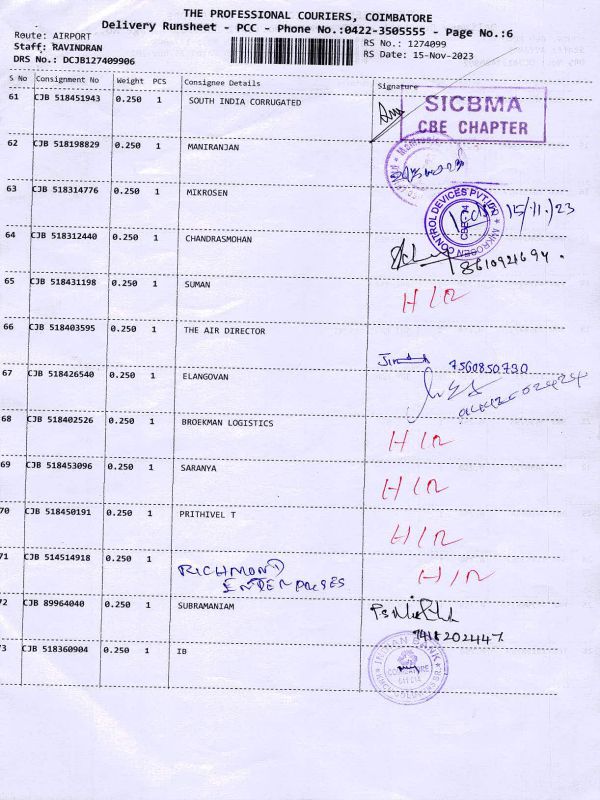 THE PROFESSIONAL COURIERS, COIMBATORE
Delivery Runsheet - PCC - Phone No.:0422-3505555 - Page No.:6
Route: AIRPORT
Staff: RAVINDRAN
DRS No.: DCJB127409906
RS No.: 1274099
RS Date: 15-Nov-2023
S No Consignment No Weight PCS Consignee Details Signature
61 CJB 518451943 0.250 1 SOUTH INDIA CORRUGATED
SICBMA
CBE CHAPTER
62 CJB 518198829 0.250 1 MANIRANJAN
63 CJB 518314776 0.250 1 MIKROSEN
MIKROSEN CONTROL DEVICES PVT.LTD
15/11/23
64 CJB 518312440 0.250 1 CHANDRASMOHAN
8610921694.
65 CJB 518431198 0.250 1 SUMAN
H/R
66 CJB 518403595 0.250 1 THE AIR DIRECTOR
7560850730
67 CJB 518426540 0.250 1 ELANGOVAN
68 CJB 518402526 0.250 1 BROEKMAN LOGISTICS
H/R
69 CJB 518453096 0.250 1 SARANYA
H/R
70 CJB 518450191 0.250 1 PRITHIVEL T
H/R
71 CJB 514514918 0.250 1 RICHMOND
ENTERPRISES
H/R
72 CJB 89964040 0.250 1 SUBRAMANIAM
7418202447
73 CJB 518360904 0.250 1 IB
INDIAN BANK
COIMBATORE